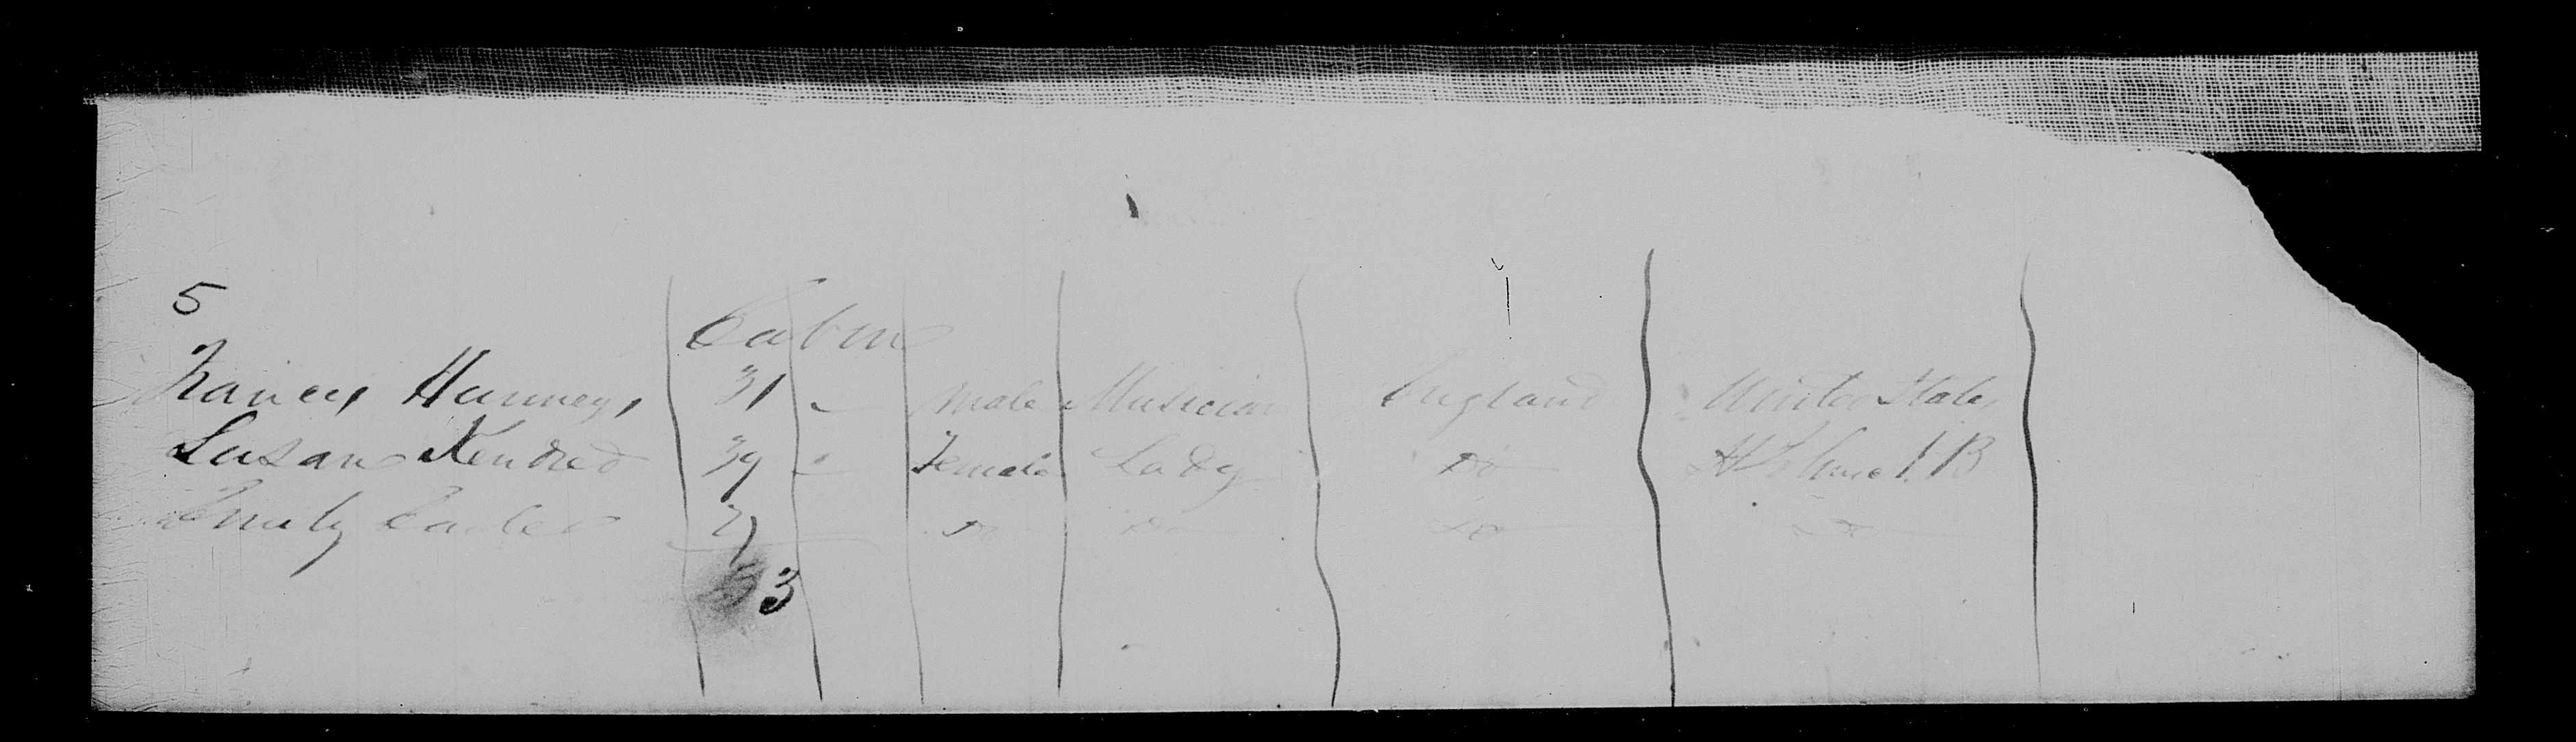 5
Cabin
Francis Hannays 31 - Male Musician England United States
Susan Kendred 39 - Female Lady Do St Johns N B
Emily Carter Do Do Do Do
3